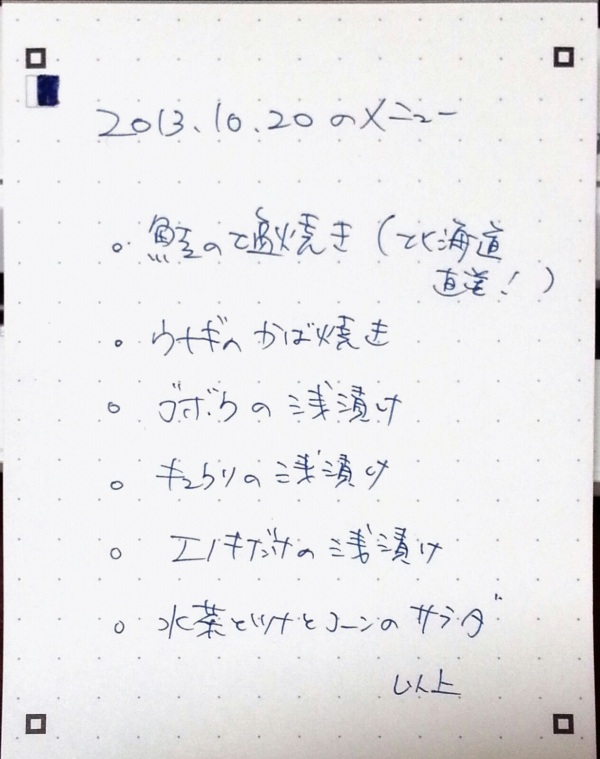 2013.10.20のメニュー
鮭の塩焼き(北海道
直送!)
ウナギのかば焼き
ゴボウの浅漬け
キュウリの浅漬け
エノキダケの浅漬け
水菜とツナとコーンのサラダ
以上